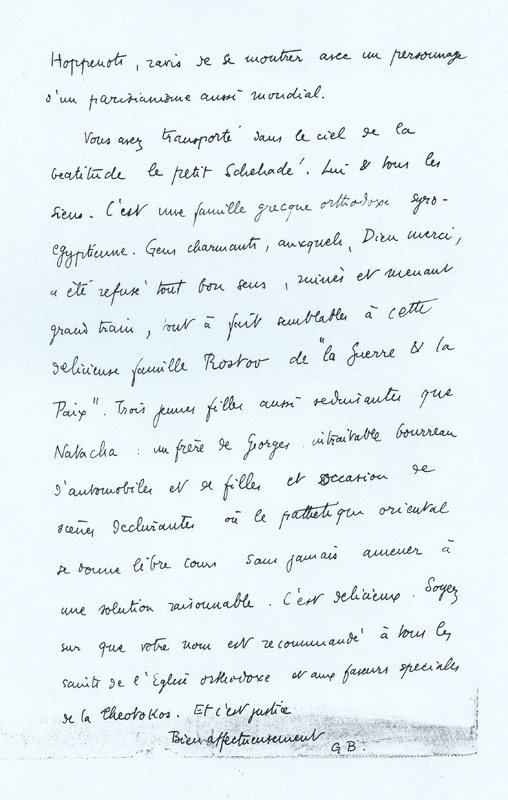 Hoppenot, ravis de se montrer avec un personnage
d'un parisianisme aussi mondial.
Vous avez transporté dans le ciel de la
beatitude le petit Schehadé. Lui & tous les
siens. C'est une famille grecque orthodoxe syro-
egyptienne. Gens charmants, auxquels, Dieu merci,
a été refusé tout bon sens, ruinés et menant
grand train, tout à fait semblables à cette
delicieuse famille Rostov de "la Guerre & la
Paix". Trois jeunes filles aussi seduisantes que
Natacha : un frère de Georges, intraitable bourreau
d'automobiles et de filles et occasion de
scènes dechirantes où le pathetique oriental
se donne libre cours sans jamais amener à
une solution raisonnable. C'est delicieux. Soyez
sur que votre nom est recommandé à tous les
saints de l'Eglise orthodoxe et aux faveurs speciales
de la Theotokos. Et c'est justice.
Bien affectueusement
G B.